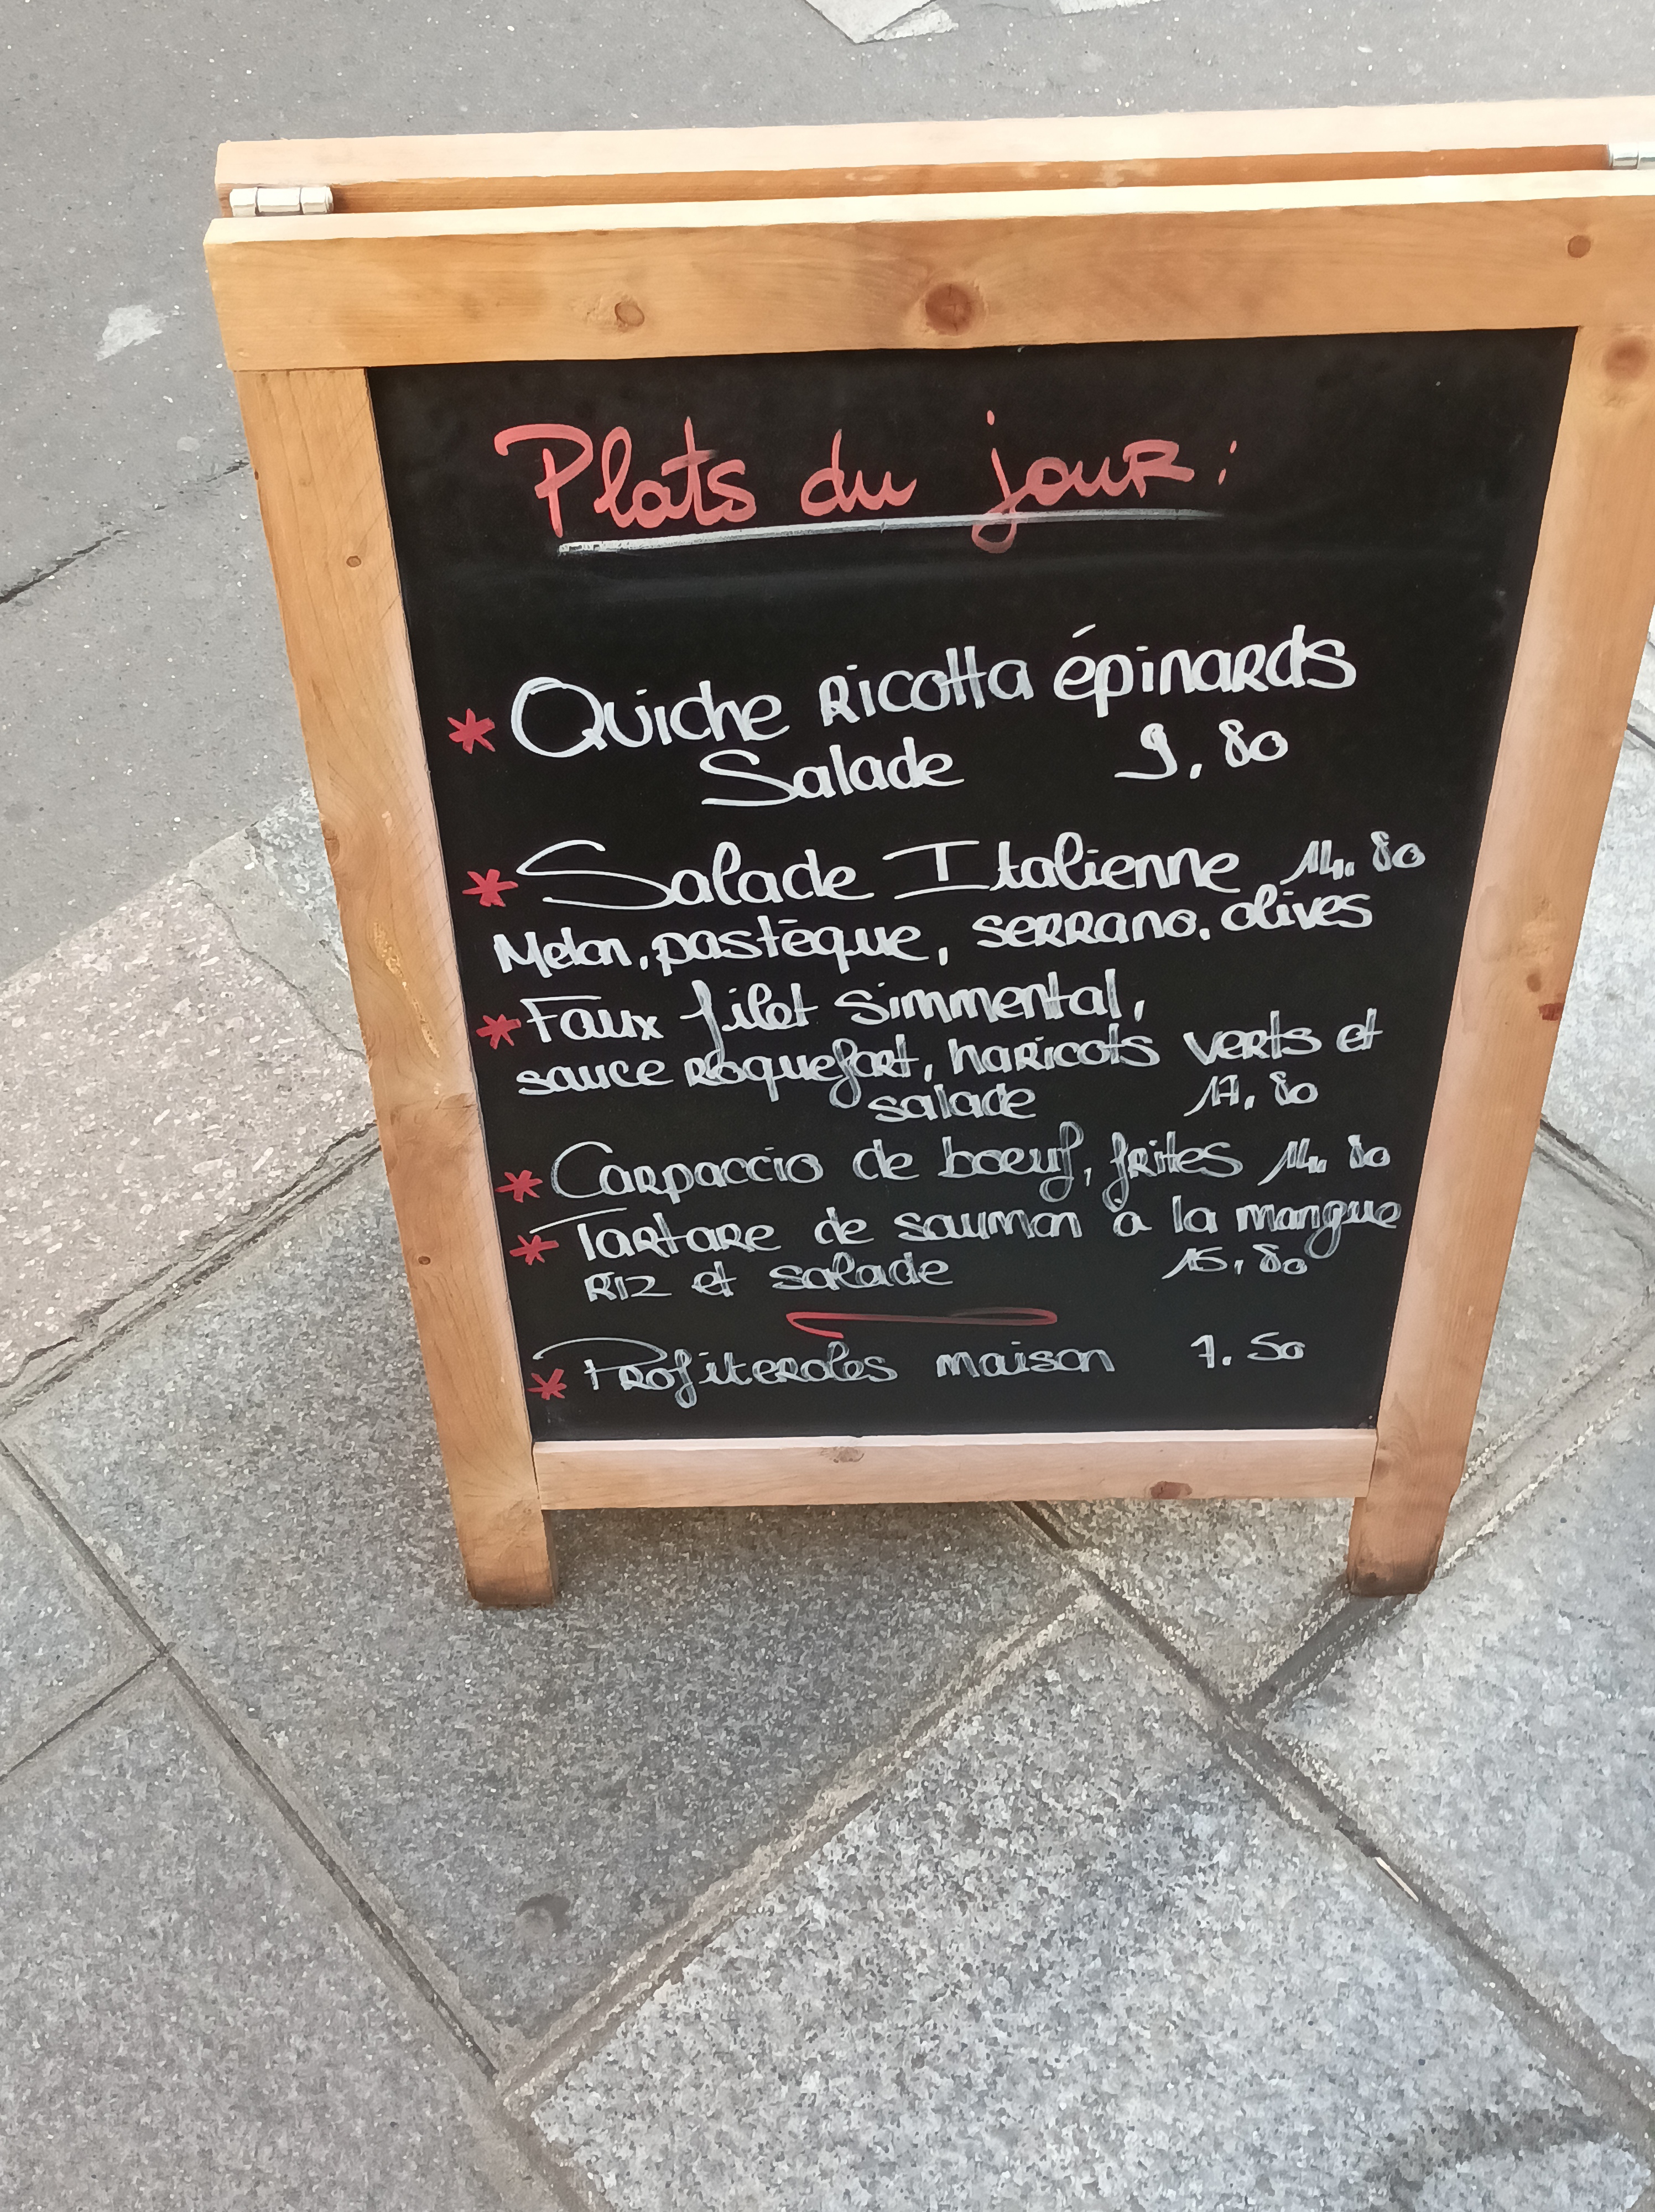 Plats du jour :
* Quiche ricotta épinards
Salade 9.80
* Salade Italienne 14.80
Melon, pastèque, serrano, olives
* Faux filet simmental,
sauce roquefort, haricots verts et
salade 17.80
* Carpaccio de boeuf, frites 14.80
* Tartare de saumon à la mangue
Riz et salade 15,80
* Profiteroles maison 7.50